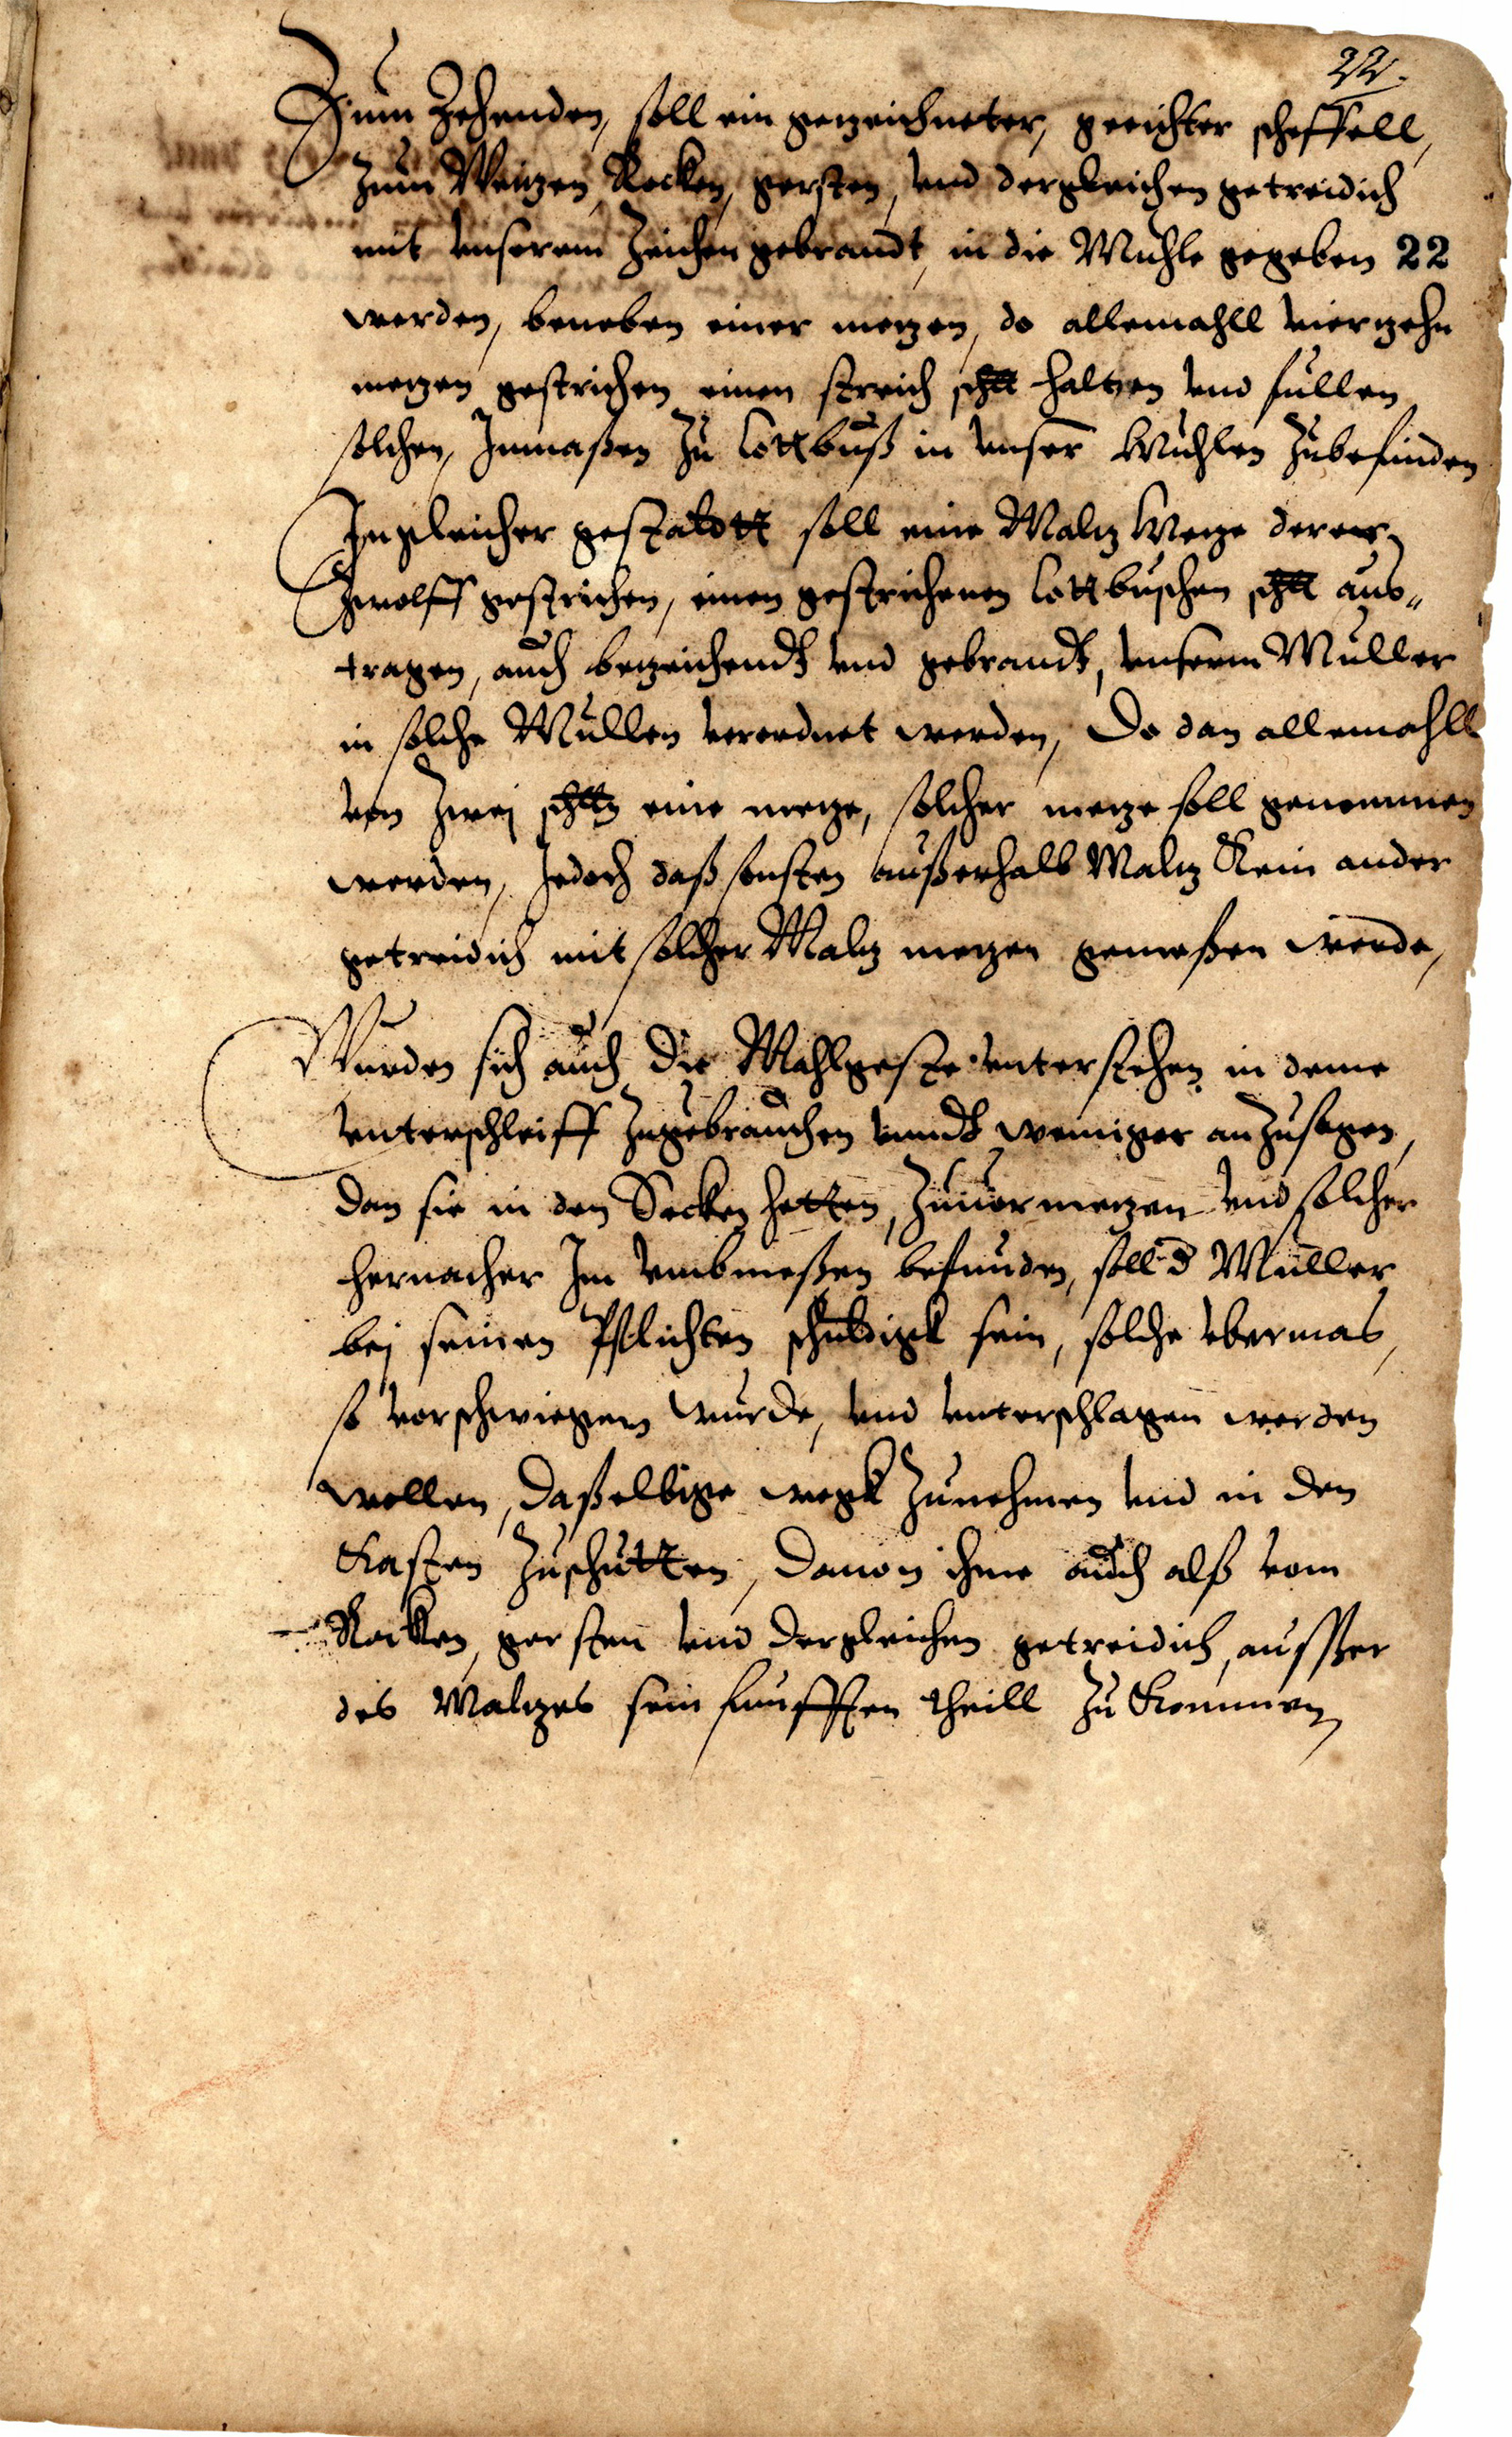 22.
Zum Zehenden, soll ein gezeichneter, geeichter scheffell,
zum Weizen, Rocken, gersten, vnd dergleichen getreidich
mit vnserem Zeichen gebrandt, in die Muhle gegeben 22
werden, beneben einer mezen, do allemahll vierzehn
mezen gestrichen einen streich schll halten vnd fullen
solchen, Inmaßen zu Cottbuß in vnser Muhlen zubefinden
In gleicher gestaldtt soll eine Maltz Meze derer
Zwolff gestrichen, einen gestrichenen Cottbuschen schll aus„
tragen, auch bezeichendt vnd gebrandt, vnserm Muller
in solche Mullen verordnet werden, Do dan allemahll
von zwej schlln eine meze, solcher meze soll genommen
werden, Jedoch daß sonsten außerhalb Maltz Kein ander
getreidich mit solcher Maltz mezen gemeßen werde,
Wurden sich auch die Mahlgeste vnterstehen in deme
vnterschleiff zugebrauchen vnndt weniger anzusagen,
dan sie in den Secken hetten, zuuormezen vnd solcher
hernacher Im vmbmeßen befunden, soll d Muller
bej seinen Pflichten schuldigk sein, solche vbermas,
so vorschwiegen wurde, vnd vnterschlagen werden
wollen, daßelbige wegk zunehmen vnd in den
Kasten zuschutten, dauon ihme auch alß vom
Rocken, gersten vnd dergleichen getreidich, ausser
des Maltzes sein funfften theill zu Kommen